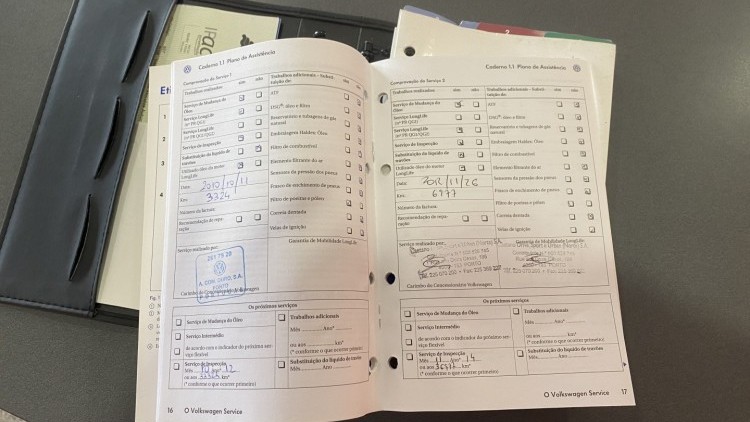 Caderno 1.1 Plano de Assistência
Comprovação do Serviço 1
Trabalhos realizados sim não
Serviço de Mudança do Óleo
Serviço LongLife
Serviço LongLife
Serviço de Inspecção
Substituição do líquido de travões
Utilizado óleo do motor LongLife
Data:
Km: 3324
Número da factura:
Recomendação de reparação
Serviço realizado por:
PORTO
Carimbo do Concessionário Volkswagen
Trabalhos adicionais - Substituição do: sim não
ATF
DSG®: óleo e filtro
Reservatório e tubagens de gás natural
Embraiagem Haldex: Óleo
Filtro de combustível
Elemento filtrante do ar
Sensores da pressão dos pneus
Frasco de enchimento de pneus
Filtro de poeiras e pólen
Correia dentada
Velas de ignição
Garantia de Mobilidade LongLife
Os próximos serviços
Serviço de Mudança do Óleo
Serviço Intermédio
de acordo com o indicador do próximo serviço flexível
Serviço de Inspecção
(* conforme o que ocorrer primeiro)
Trabalhos adicionais
Mês Ano*
ou aos km*
(* conforme o que ocorrer primeiro)
Substituição do líquido de travões
Mês Ano
16 O Volkswagen Service
2
Caderno 1.1 Plano de Assistência
Comprovação do Serviço 2
Trabalhos realizados sim não
Serviço de Mudança do Óleo
Serviço LongLife
Serviço LongLife
Serviço de Inspecção
Substituição do líquido de travões
Utilizado óleo do motor LongLife
Data: 2012/11/26
Km: 6977
Número da factura:
Recomendação de reparação
Serviço realizado por:
Carimbo do Concessionário Volkswagen
Trabalhos adicionais - Substituição do: sim não
ATF
DSG®: óleo e filtro
Reservatório e tubagens de gás natural
Embraiagem Haldex: Óleo
Filtro de combustível
Elemento filtrante do ar
Sensores da pressão dos pneus
Frasco de enchimento de pneus
Filtro de poeiras e pólen
Correia dentada
Velas de ignição
Garantia de Mobilidade LongLife
Os próximos serviços
Serviço de Mudança do Óleo
Serviço Intermédio
de acordo com o indicador do próximo serviço flexível
Serviço de Inspecção
(* conforme o que ocorrer primeiro)
Trabalhos adicionais
Mês Ano*
ou aos km*
(* conforme o que ocorrer primeiro)
Substituição do líquido de travões
Mês Ano
O Volkswagen Service 17